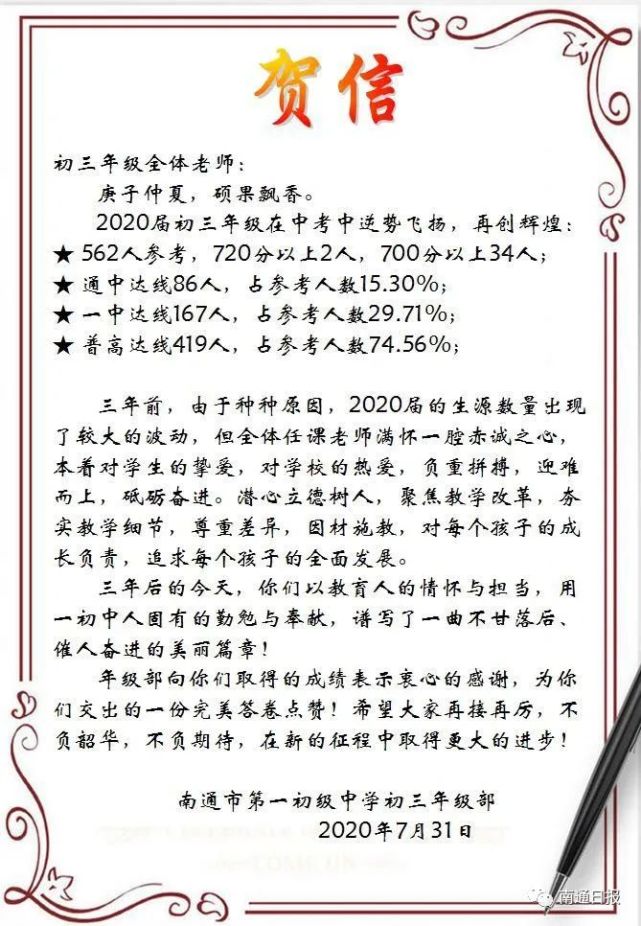 贺信
初三年级全体老师：
庚子仲夏，硕果飘香。
2020届初三年级在中考中逆势飞扬，再创辉煌：
★ 562人参考，720分以上2人，700分以上34人；
★ 通中达线86人，占参考人数15.30%；
★ 一中达线167人，占参考人数29.71%；
★ 普高达线419人，占参考人数74.56%；
三年前，由于种种原因，2020届的生源数量出现
了较大的波动，但全体任课老师满怀一腔赤诚之心，
本着对学生的挚爱，对学校的热爱，负重拼搏，迎难
而上，砥砺奋进。潜心立德树人，聚焦教学改革，夯
实教学细节，尊重差异，因材施教，对每个孩子的成
长负责，追求每个孩子的全面发展。
三年后的今天，你们以教育人的情怀与担当，用
一初中人固有的勤勉与奉献，谱写了一曲不甘落后、
催人奋进的美丽篇章！
年级部向你们取得的成绩表示衷心的感谢，为你
们交出的一份完美答卷点赞！希望大家再接再厉，不
负韶华，不负期待，在新的征程中取得更大的进步！
南通市第一初级中学初三年级部
2020年7月31日
南通日报